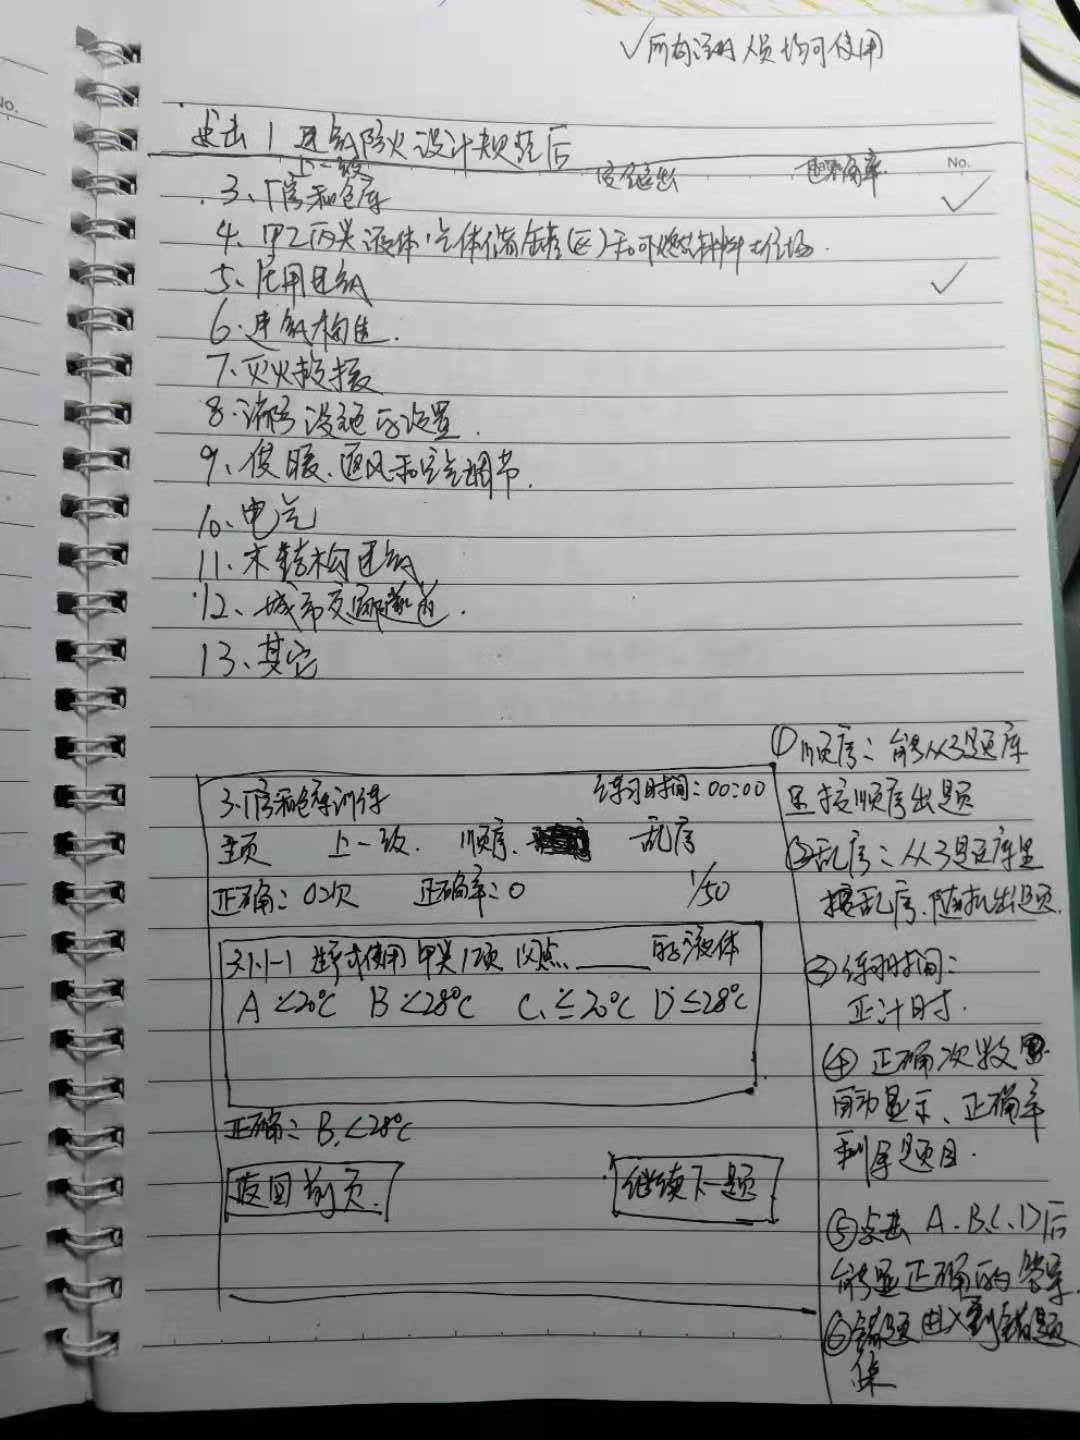 ✓所有注册人员均可使用
点击1 建筑防火设计规范后
上一级 安全退出 正确率
No.
3、厂房和仓库 ✓
4、甲乙丙类液体、气体储罐(区)和可燃材料堆场.
5、民用建筑 ✓
6.建筑构造.
7、灭火救援
8.消防设施的设置.
9、供暖、通风和空气调节.
10、电气
11、木结构建筑
12、城市交通隧道.
13、其它
3.厂房和仓库训练 练习时间:00:00
主页 上一级. 顺序、 乱序
正确:0次 正确率:0 1/50
3.1.1-1 生产或使用 甲类1项 闪点____的液体
A <20℃ B <28℃ C、≤20℃ D ≤28℃
正确:B、<28℃
返回前页. 继续下一题
①顺序:能从3题库
里按顺序出题
②乱序:从3题库里
按乱序、随机出题.
③练习时间:
正计时.
④正确次数
自动显示、正确率
剩余题目.
⑤点击 A.B.C.D后
能显正确的答案.
⑥错题进入到错题
库
No.